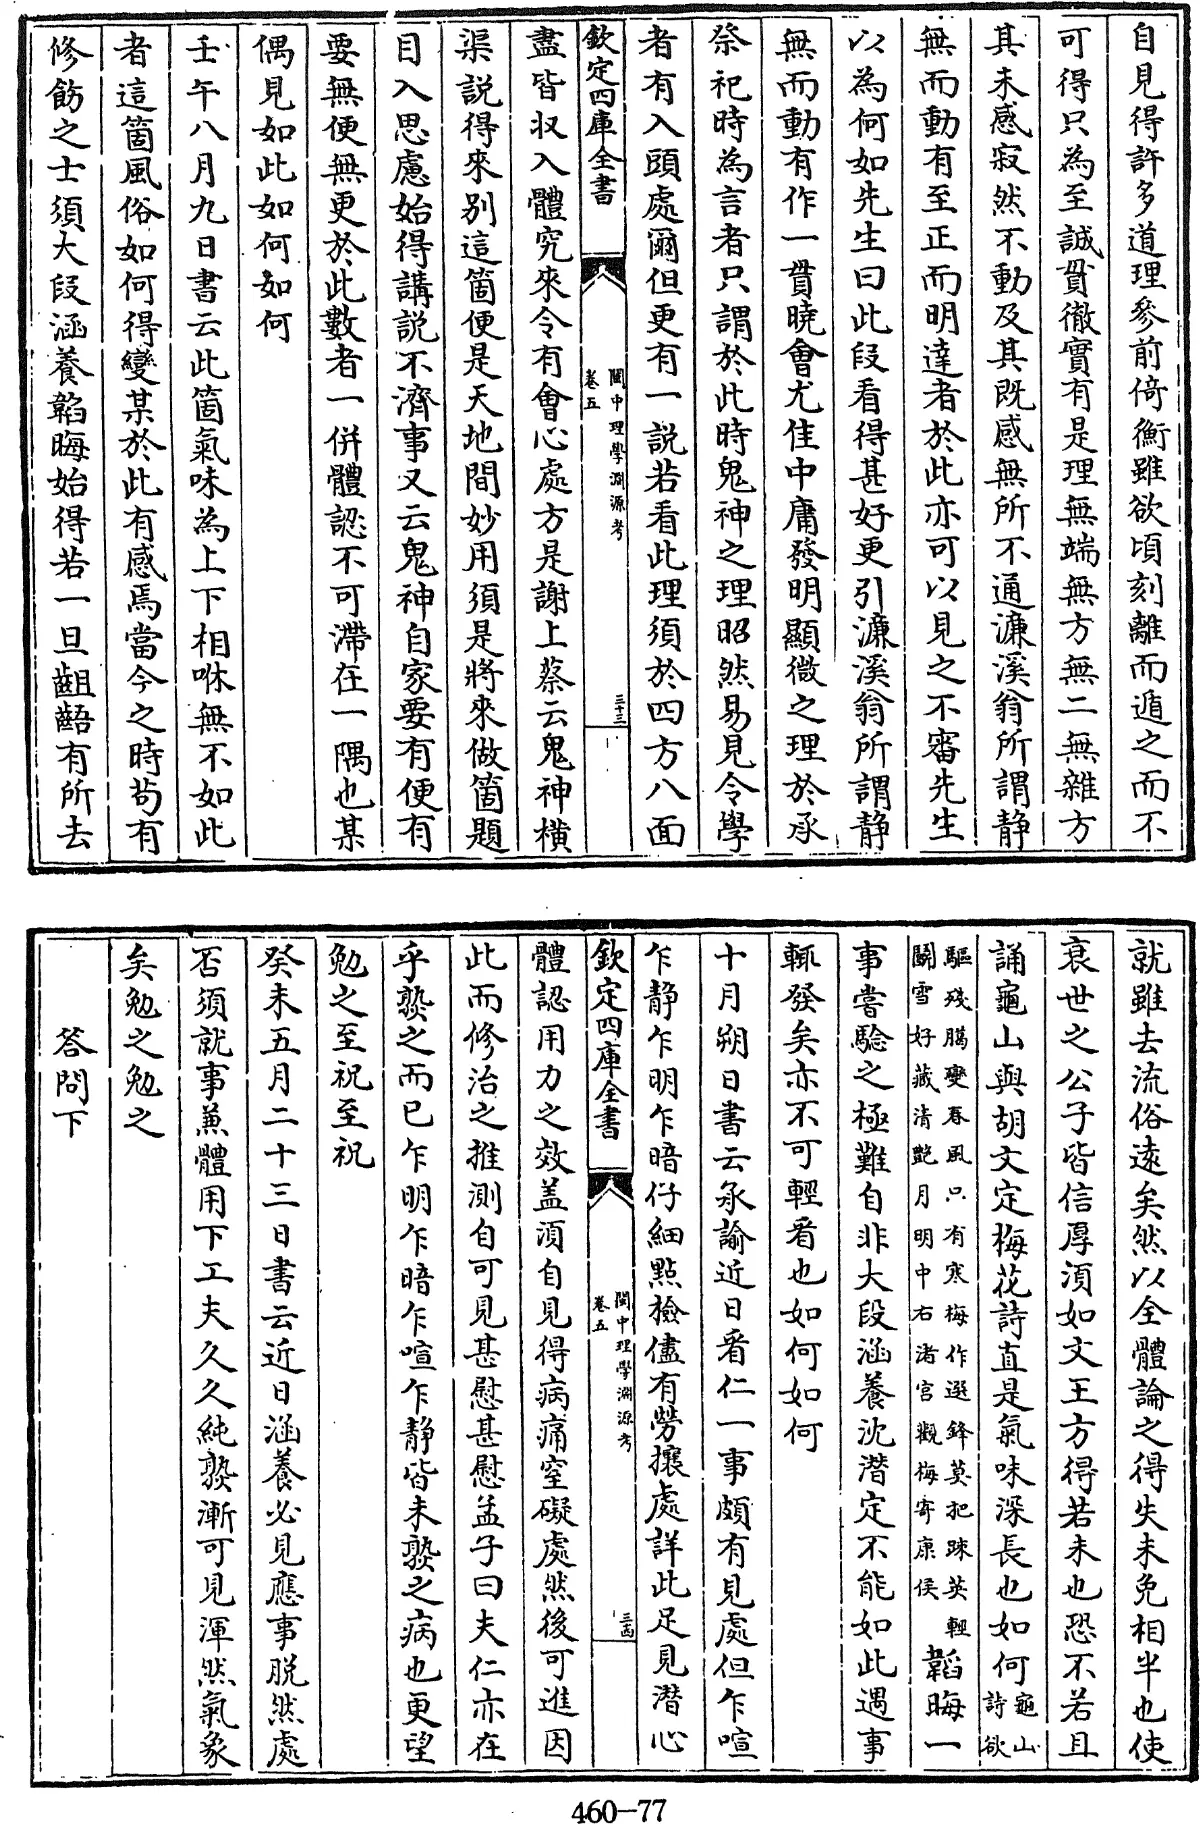 自見得許多道理參前倚衡雖欲頃刻離而遁之而不
可得只為至誠貫徹實有是理無端無方無二無雜方
其未感寂然不動及其既感無所不通濂溪翁所謂静
無而動有至正而明達者於此亦可以見之不審先生
以為何如先生曰此段看得甚好更引濂溪翁所謂静
無而動有作一貫曉會尤佳中庸發明顯微之理於承
祭祀時為言者只謂於此時鬼神之理昭然易見令學
者有入頭處爾但更有一説若看此理須於四方八面
欽定四庫全書
閩中理學淵源考
卷五
三十三
盡皆収入體究來令有會心處方是謝上蔡云鬼神横
渠説得來别這箇便是天地間妙用須是將來做箇題
目入思慮始得講説不濟事又云鬼神自家要有便有
要無便無更於此數者一併體認不可滯在一隅也某
偶見如此如何如何
壬午八月九日書云此箇氣味為上下相咻無不如此
者這箇風俗如何得變某於此有感焉當今之時茍有
修飭之士須大段涵養韜晦始得若一旦齟齬有所去
就雖去流俗逺矣然以全體論之得失未免相半也使
衰世之公子皆信厚湏如文王方得若未也恐不若且
誦龜山與胡文定梅花詩直是氣味深長也如何龜山
詩欲
驅殘臈變春風只有寒梅作選鋒莫把疎英輕
鬭雪好藏清艶月明中右渚宫觀梅寄康侯
韜晦一
事嘗驗之極難自非大段涵養沈潛定不能如此遇事
輒發矣亦不可輕看也如何如何
十月朔日書云承諭近日看仁一事頗有見處但乍喧
乍静乍明乍暗仔細㸃檢儘有勞攘處詳此足見潛心
欽定四庫全書
閩中理學淵源考
卷五
三十四
體認用力之效盖湏自見得病痛窒礙處然後可進因
此而修治之推測自可見甚慰甚慰孟子曰夫仁亦在
乎熟之而已乍明乍暗乍喧乍静皆未熟之病也更望
勉之至祝至祝
癸未五月二十三日書云近日涵養必見應事脱然處
否須就事兼體用下工夫久久純熟漸可見渾然氣象
矣勉之勉之
答問下
460-77